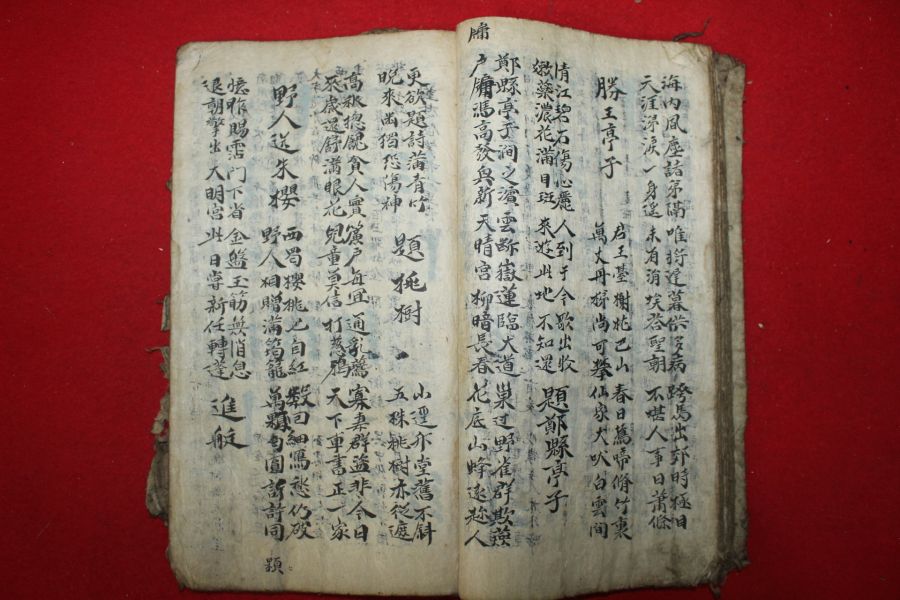 海內風塵諸弟隔 唯將遲暮供多病 跨馬出郊時極目
天涯涕淚一身遙 未有消埃答聖朝 不堪人事日蕭條
勝王亭子
君王臺榭枕巴山 春日鶯啼脩竹裏
萬丈丹梯尚可攀 仙家犬吠白雲間
情江碧石傷心麗 人到于今歌出牧
嫩蘂濃花滿目斑 來遊此地不知還
題鄭縣亭子
鄭縣亭子澗之濱 雲斷嶽蓮臨大道 巢邊野雀群欺燕
牖
戶牖馮高發興新 天晴宮柳暗長春 花底山蜂遠趂人
更欲題詩滿青竹
晩來幽獨恐傷神
題桃樹
小逕升堂舊不斜
五株桃樹亦從遮
高秋摠餽貧人實 簾戶每宜通乳鷰 寡妻群盜非今日
來歲還舒滿眼花 兒童莫信打慈鴉 天下車書正一家
野人送朱櫻
西蜀櫻桃也自紅 數回細寫愁仍破
野人相贈滿筠籠 萬顆勻圓訝許同
顆
憶昨賜霑門下省 金盤玉筯無消息
退朝擎出大明宮 此日嘗新任轉蓬
進艇